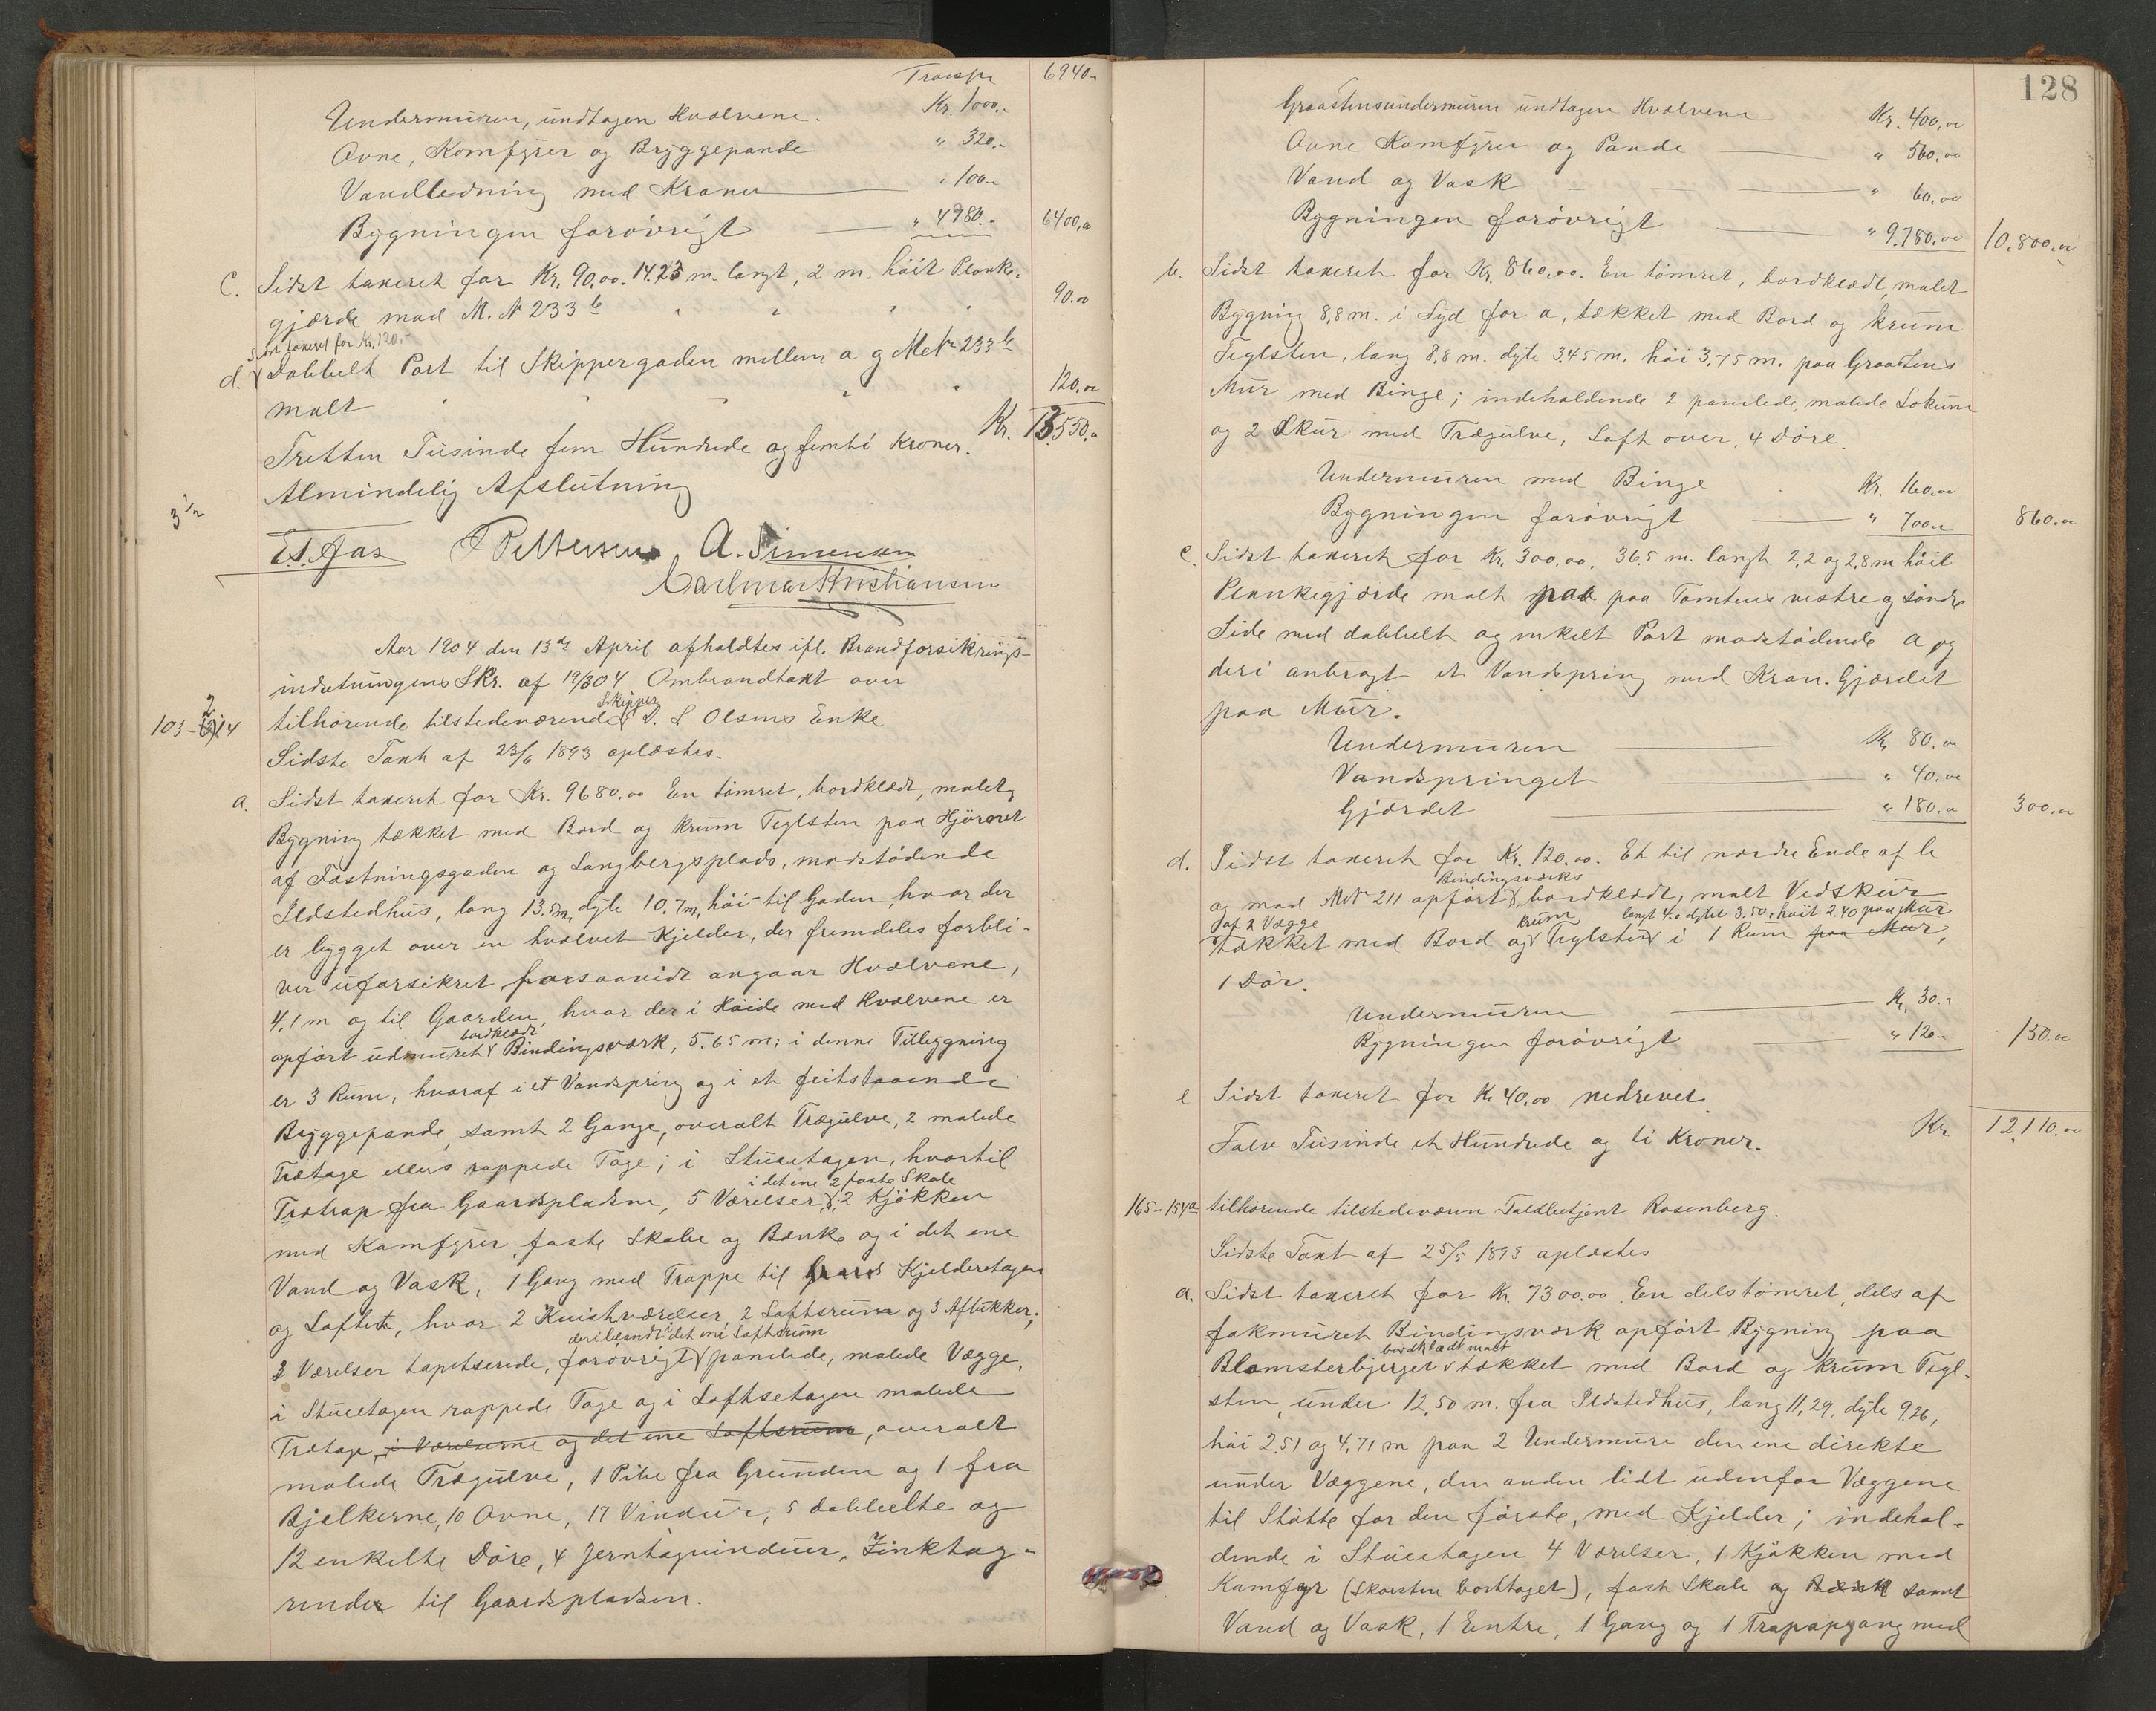 Transp. 6940.-
Undermuren, undtagen Hvælvene. Kr. 1000.-
Ovne, Komfyrer og Bryggepande " 320.-
Vandledning med Kraner " 100.-
Bygningen forøvrigt " 4980.- 6400,00
c. Sidst taxeret for Kr. 90,00. 14.25 m. langt, 2 m. høit Planke-
gjærde mod M. N 233 b " " " " 90.00
Sidst taxeret for Kr. 120.-
d. Dobbelt Port til Skippergaden mellem a og M No 233 b
malt " " " 120.00
Kr. 13,550.00
Tretten Tusinde fem Hundrede og femti Kroner.
Almindelig Afslutning
3 1/2
E.S. Aas J Pettersen A. Simensen
Carlmar Kristiansen
Aar 1904 den 13de April afholdtes ifl. Brandforsikrings-
indretningens Skr. af 19/3 04 Ombrandtaxt over
Skipper
103-214 tilhørende tilstedeværende S. S Olsens Enke
Sidste Taxt af 23/6 1893 oplæstes.
a. Sidst taxeret for Kr. 9680.00 En tømret, bordklædt, malet,
Bygning tækket med Bord og krum Teglsten paa Hjørnet
af Fæstningsgaden og Langbergsplads, modstødende
Ildstedhus, lang 13.5m, dyb 10.7m, høi til Gaden, hvor der
er bygget over en hvælvet Kjelder, der fremdeles forbli-
ver uforsikret forsaavidt angaar Hvælvene,
4,1 m og til Gaarden, hvor der i Høide med Hvælvene er
bordklædt
opført udmuret Bindingsværk, 5.65 m; i denne Tilbygning
er 3 Rum, hvoraf i et Vandspring og i et fritstaaende
Bryggepande, samt 2 Gange, overalt Trægulve, 2 malede
Trætage ellers rappede Tage; i Stueetagen, hvortil
i det ene 2 faste Skabe
Trætrap fra Gaardspladsen, 5 Værelser, 2 Kjøkken
med Komfyrer, faste Skabe og Bænke og i det ene
Vand og Vask, 1 Gang med Trappe til Kjelderetagen
og Loftet, hvor 2 Kvistværelser, 2 Loftsrum og 3 Aflukker;
deriblandt i det ene Loftsrum
3 Værelser tapetserede, forøvrigt panelede, malede Vægge,
i Stueetagen rappede Tage og i Loftsetagen malede
Trætage, i Værelserne og det ene Loftsrum, overalt
malede Trægulve, 1 Pibe fra Grunden og 1 fra
Bjelkerne, 10 Ovne, 17 Vinduer, 5 dobbelte og
12 enkelte Døre, 4 Jerntagvinduer, Zinktag-
render til Gaardspladsen.
128
Graastensundermuren undtagen Hvælvene Kr. 400,00
Ovne Komfyrer og Pande " 560,00
Vand og Vask " 60,00
Bygningen forøvrigt " 9.780.00 10,800.00
b. Sidst taxeret for Kr. 860,00. En tømret, bordklædt, malet
Bygning 8,8 m. i Syd for a, tækket med Bord og krum
Teglsten, lang 8,8 m. dyb 3,45 m, høi 3,75 m. paa Graastens
Mur med Binge; indeholdende 2 panelede, malede Lokum
og 2 Skur med Trægulve, Loft over, 4 Døre.
Undermuren med Binge Kr. 160.00
Bygningen forøvrigt " 700.00 860.00
c. Sidst taxeret for Kr. 300.00. 36,5 m. langt 2,2 og 2,8 m høit
Plankegjærde malt paa Tomtens vestre og søndre
Side med dobbelt og enkelt Port modstødende a og
deri anbragt et Vandspring med Kran. Gjærdet
paa Mur.
Undermuren Kr. 80.00
Vandspringet " 40,00
Gjærdet " 180.00 300.00
d. Sidst taxeret for Kr. 120.00. Et til nordre Ende af b
Bindingsværks
og mod M No 211 opført bordklædt, malt Vedskur
af 2 Vægge krum langt 4.0 dybt 3.50, høit 2.40 paa Mur
tækket med Bord og Teglsten i 1 Rum paa Mur,
1 Dør.
Undermuren Kr. 30.-
Bygningen forøvrigt " 120.- 150.00
e Sidst taxeret for Kr 40.00 nedrevet.
Kr. 12,110.00
Tolv Tusinde et Hundrede og ti Kroner.
165-154a tilhørende tilstedeværen Toldbetjent Rosenberg.
Sidste Taxt af 25/5 1893 oplæstes
a. Sidst taxeret for Kr. 7300.00. En dels tømret, dels af
fakmuret Bindingsværk opført Bygning paa
bordklædt malt
Blomsterbjerget tækket med Bord og krum Tegl-
sten, under 12,50 m. fra Ildstedhus, lang 11,29, dyb 9,26,
høi 2,51 og 4,71 m paa 2 Undermure den ene direkte
under Væggene, den anden lidt udenfor Væggene
til Støtte for den første, med Kjelder; indehol-
dende i Stueetagen 4 Værelser, 1 Kjøkken med
Komfyr (Skorsten borttaget), fast Skab og Bænk samt
Vand og Vask, 1 Entre, 1 Gang og 1 Trapopgang med